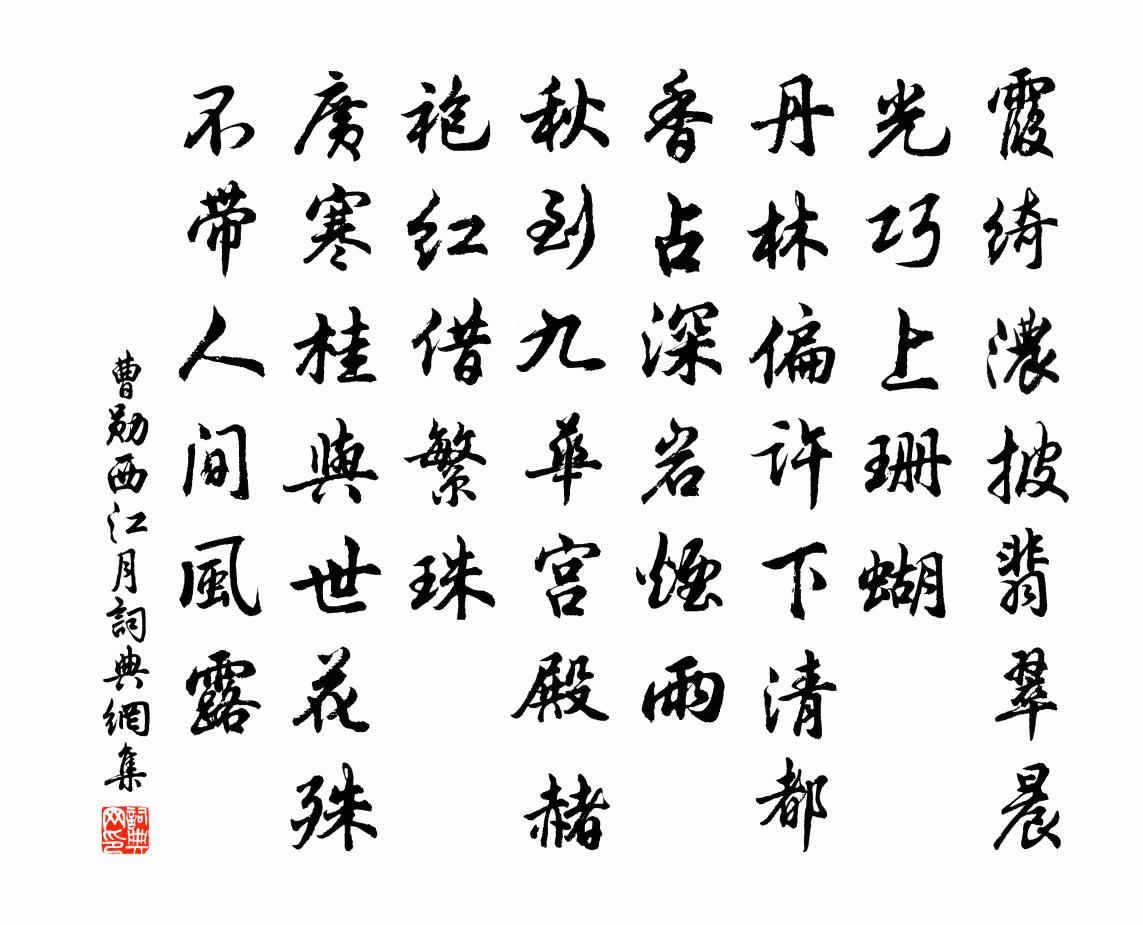 霞绮濃披翡翠晨
光巧上珊蝴
丹林偏许下清都
香占深岩煙雨
秋到九華宫殿赭
袍红借繁珠
廣寒桂與世花殊
不带人间風露
曹勋西江月詞典網集
詞典网印